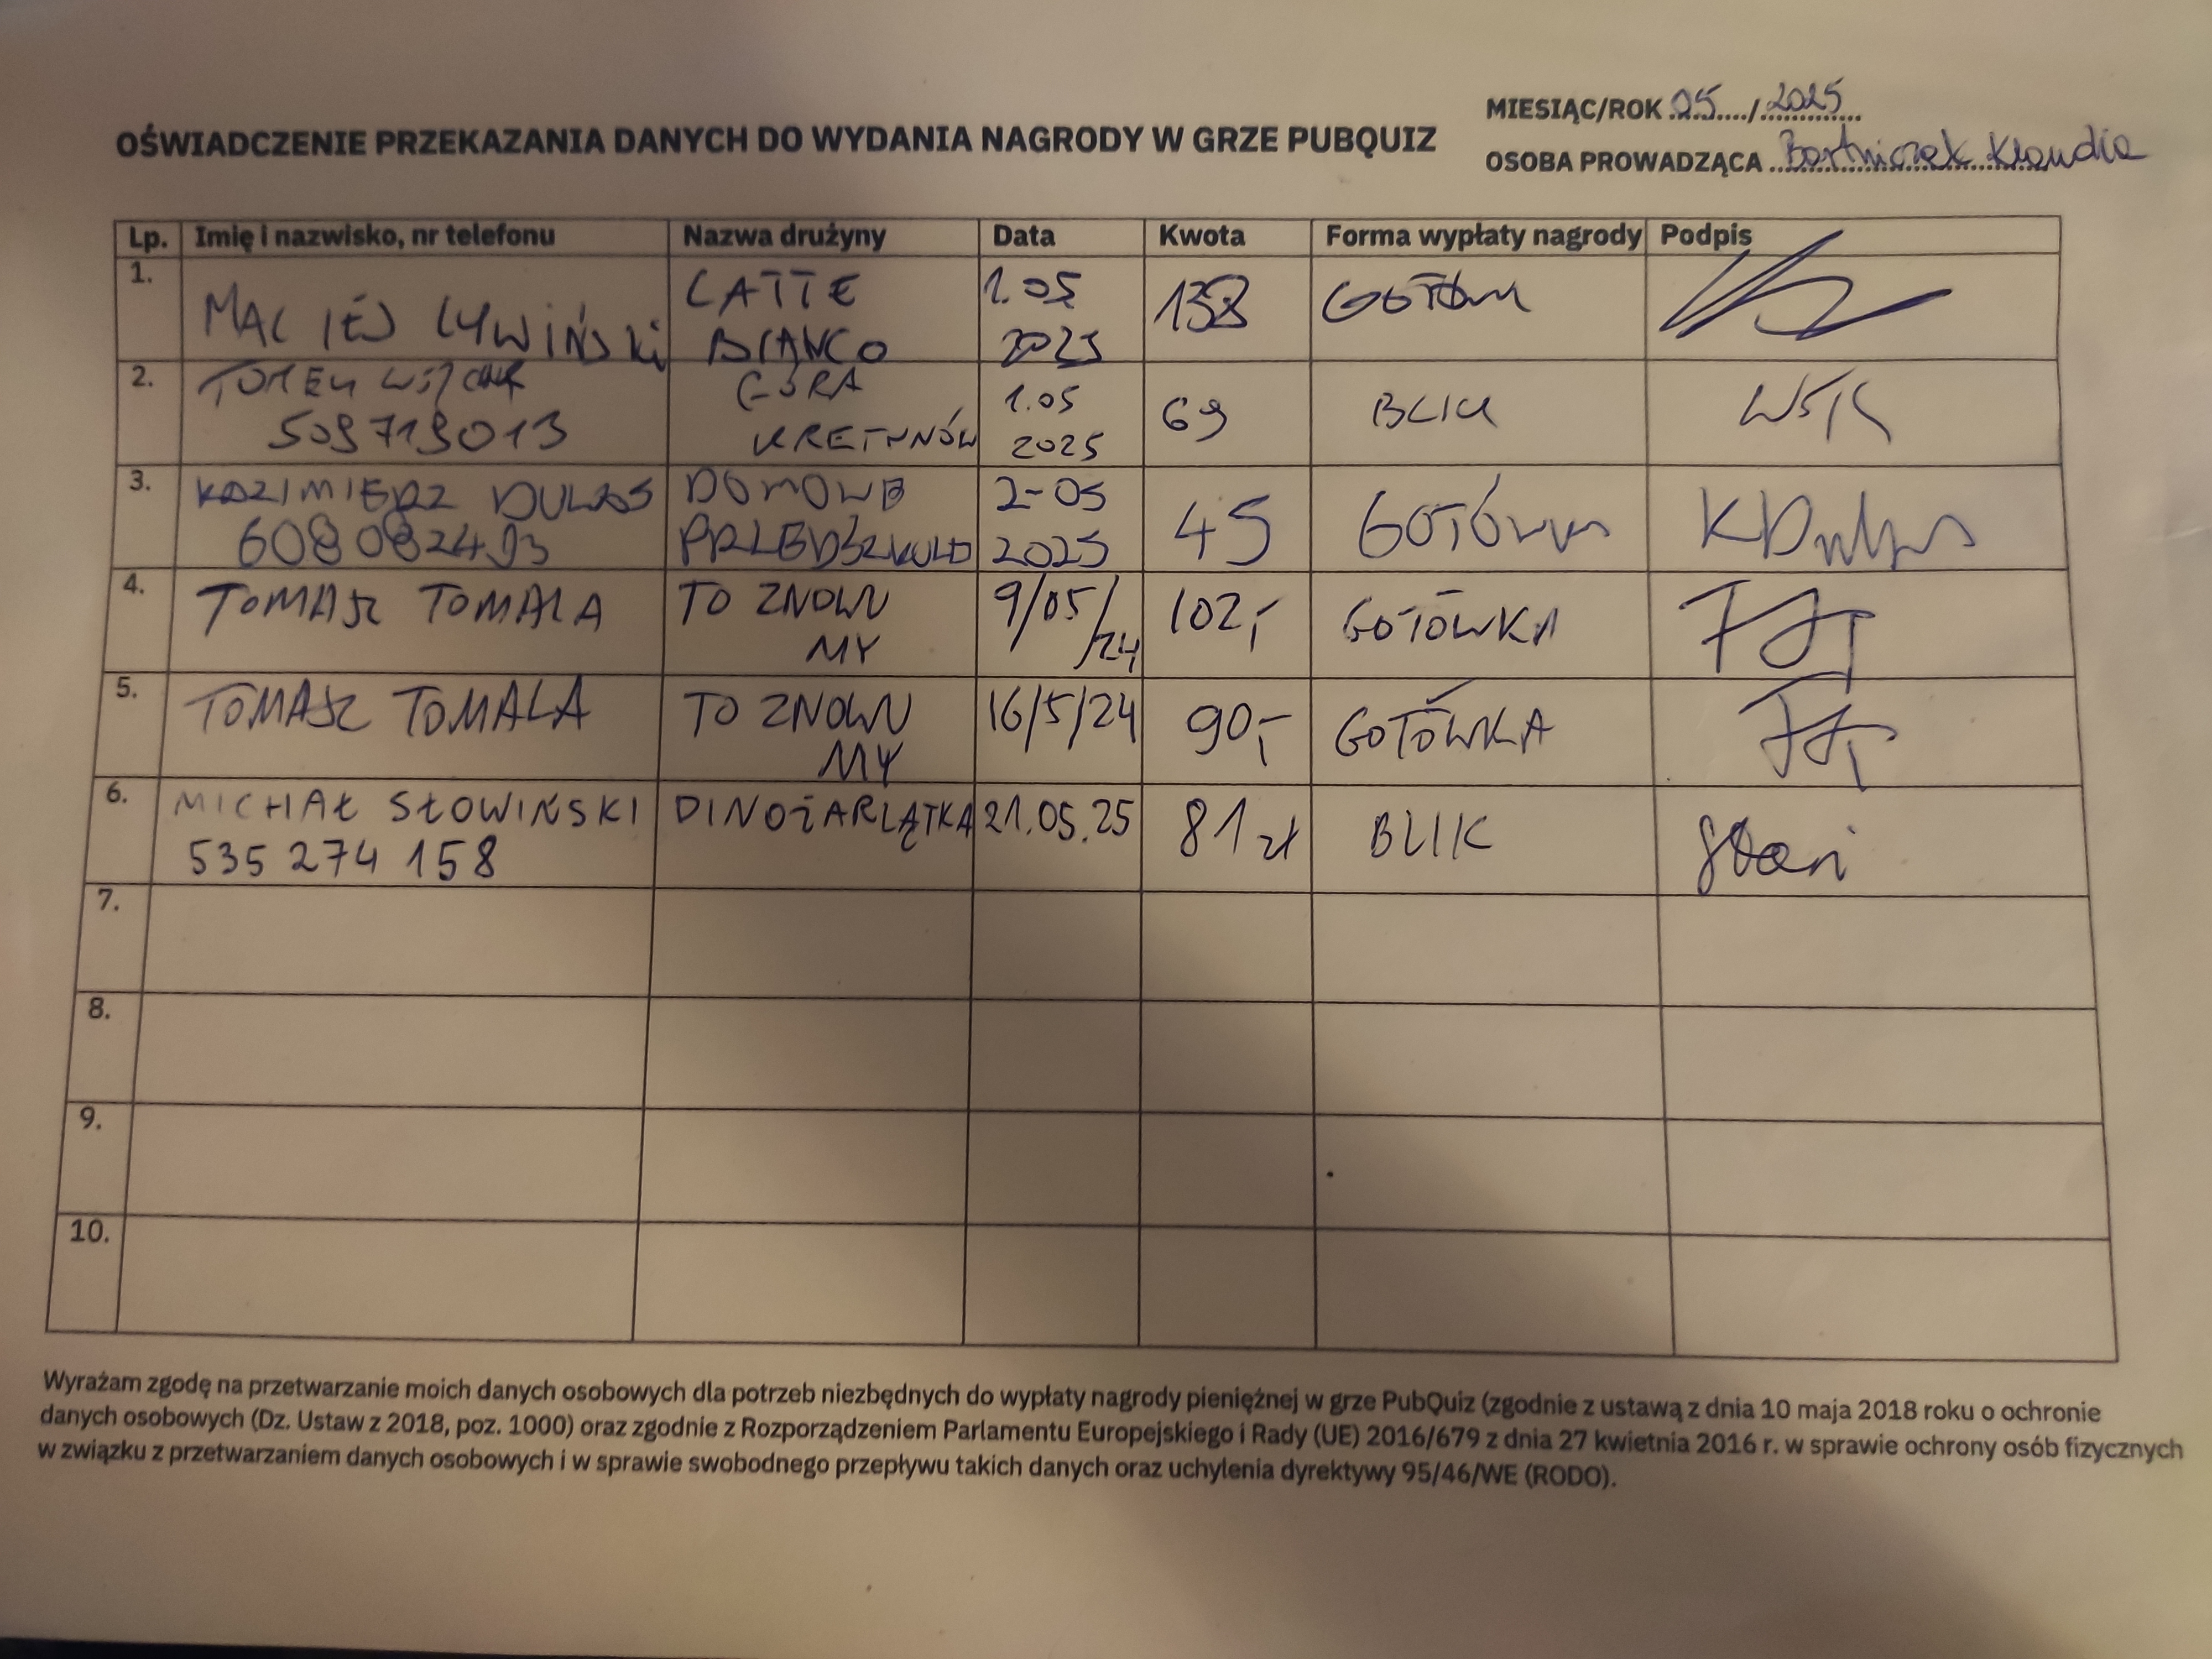 MIESIĄC/ROK 05..../.2025
OŚWIADCZENIE PRZEKAZANIA DANYCH DO WYDANIA NAGRODY W GRZE PUBQUIZ
OSOBA PROWADZĄCA Bartniczek Klaudia
Lp. Imię i nazwisko, nr telefonu Nazwa drużyny Data Kwota Forma wypłaty nagrody Podpis
1. MACIEJ LYWIŃSKI LATTE BIANCO 1.05 2025 138
2. 509719013 GÓRA KRETYNÓW 1.05 2025 69 BLIK
3. KAZIMIERZ 608082493 DOMOWE 2-05 2025 45 GOTÓWKA
4. TOMASZ TOMALA TO ZNOWU MY 9/05/24 102,- GOTÓWKA
5. TOMASZ TOMALA TO ZNOWU MY 16/5/24 90,- GOTÓWKA
6. MICHAŁ SŁOWIŃSKI 535 274 158 DINOŻARLĄTKA 21.05.25 81 zł BLIK
7.
8.
9.
10.
Wyrażam zgodę na przetwarzanie moich danych osobowych dla potrzeb niezbędnych do wypłaty nagrody pieniężnej w grze PubQuiz (zgodnie z ustawą z dnia 10 maja 2018 roku o ochronie
danych osobowych (Dz. Ustaw z 2018, poz. 1000) oraz zgodnie z Rozporządzeniem Parlamentu Europejskiego i Rady (UE) 2016/679 z dnia 27 kwietnia 2016 r. w sprawie ochrony osób fizycznych
w związku z przetwarzaniem danych osobowych i w sprawie swobodnego przepływu takich danych oraz uchylenia dyrektywy 95/46/WE (RODO).